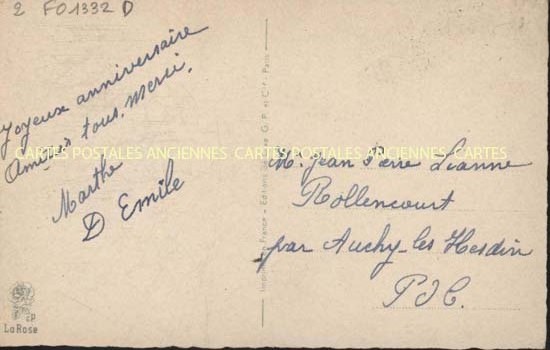 2 FO1332 D
Joyeux anniversaire
Amitiés tous, merci.
Marthe
D Emile
CARTES POSTALES ANCIENNES CARTES POSTALES ANCIENNES CARTES
Mr Jean Pierre Lianne
Rollencourt
par Auchy-les Hesdin
P.d.C.
en France - Editions G. P. et Cie, Paris
GP
La Rose